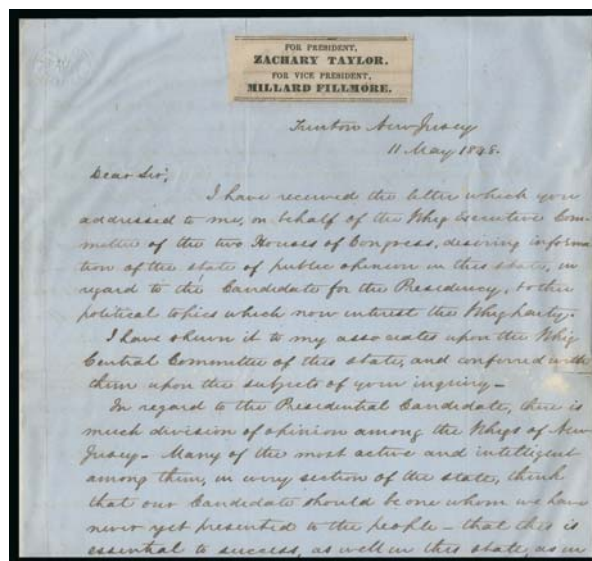 FOR PRESIDENT,
ZACHARY TAYLOR.
FOR VICE PRESIDENT,
MILLARD FILLMORE.
Trenton New Jersey
11 May 1848.
Dear Sir,
I have received the letter which you
addressed to me, on behalf of the Whig Executive Com-
mittee of the two Houses of Congress, desiring informa
tion of the state of public opinion in this state, in
regard to the Candidate for the Presidency, & other
political topics which now interest the Whig party.
I have shewn it to my associates upon the Whig
Central Committee of this state, and conferred with
them upon the subjects of your inquiry –
In regard to the Presidential Candidate, there is
much division of opinion among the Whigs of New
Jersey – Many of the most active and intelligent
among them, in every section of the state, think
that our Candidate should be one whom we have
never yet presented to the people – that this is
essential to success, as well in this state, as in